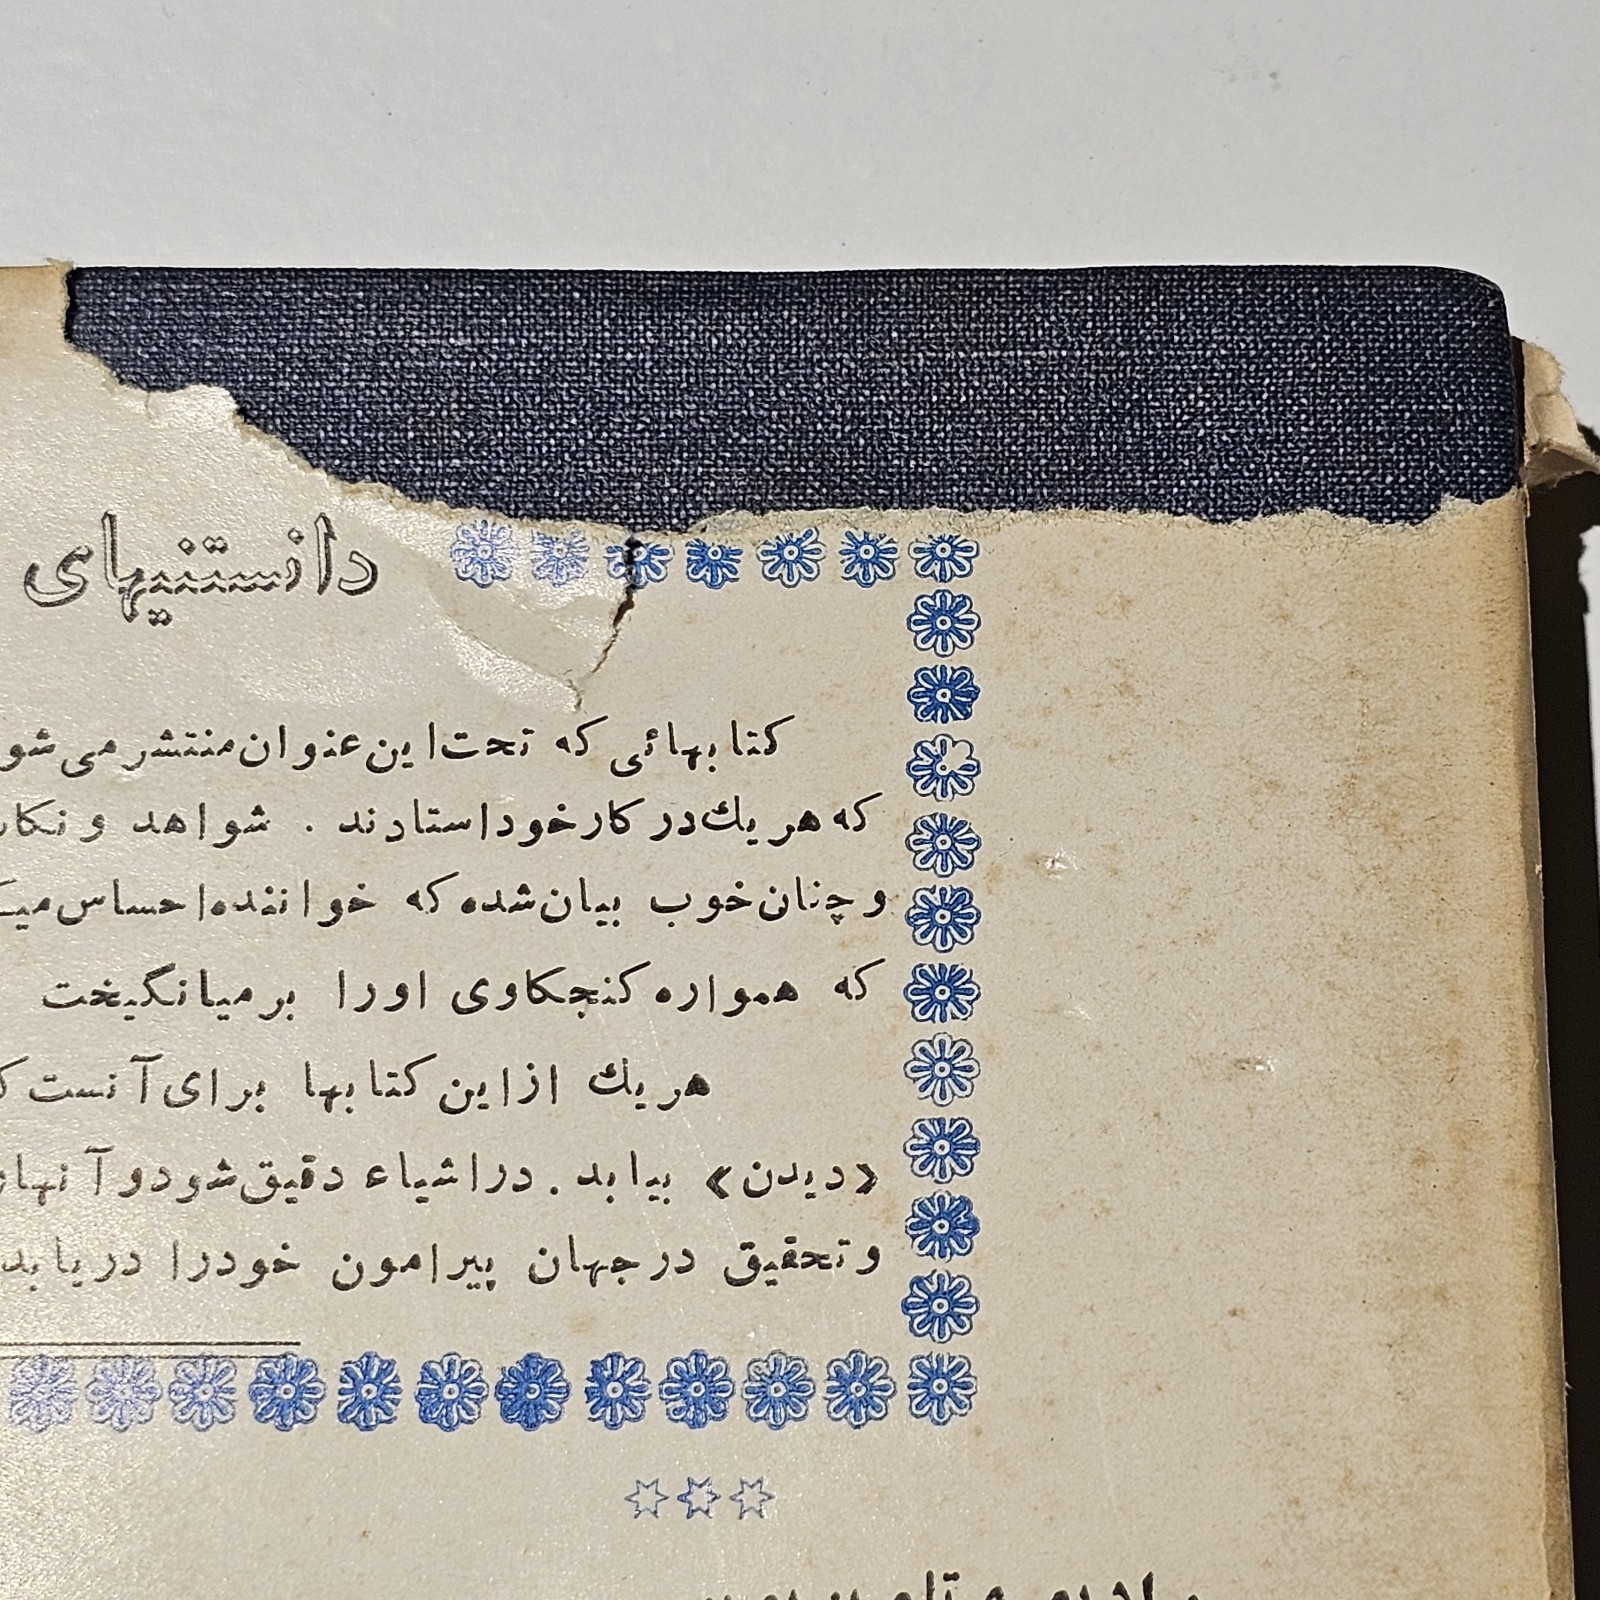 دانستنیهای
کتابهائی که تحت این عنوان منتشر می‌شو
که هر یك در کار خود استادند . شواهد و نکا
و چنان خوب بیان شده که خواننده احساس میک
که همواره کنجکاوی او را برمیانگیخت
هر یك از این کتابها برای آنست ک
«دیدن» بیابد . در اشیاء دقیق شود و آنها
و تحقیق در جهان پیرامون خود را دریابد